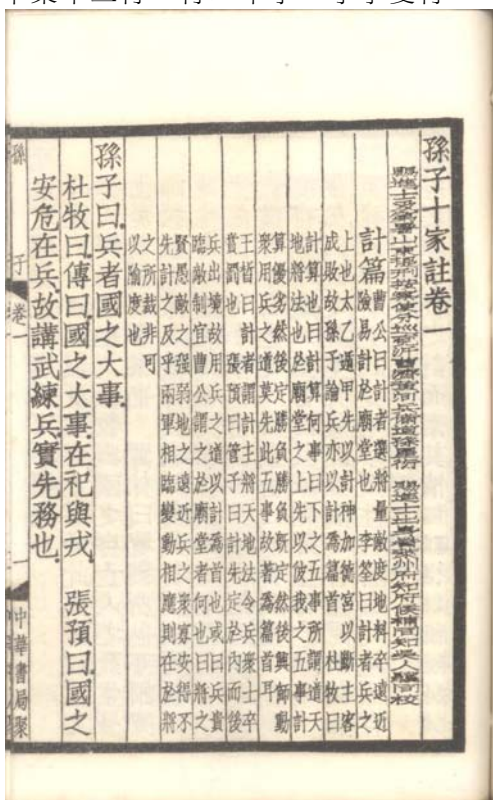 孫子十家註卷一
賜進士及第署山東提刑按察使分巡兗沂曹濟黃河兵備道孫星衍 賜進士出身署萊州府知府候補同知吳人驥同校
計篇
曹公曰計者選將量敵度地料卒遠近
險易計於廟堂也 李筌曰計者兵之
上也太乙遁甲先以計神加德宮以斷主客
成敗故孫子論兵亦以計為篇首 杜牧曰
計算也曰計算何事曰下之五事所謂道天
地將法也於廟堂之上先以彼我之五事計
算優劣然後定勝負勝負既定然後興師動
眾用兵之道莫先此五事故著為篇首耳
王晳曰計者謂計主將天地法令兵眾士卒
賞罰也 張預曰管子曰計先定於內而後
兵出境故用兵之道以計為首也或曰兵貴
臨敵制宜曹公謂計於廟堂者何也曰將之
賢愚敵之強弱地之遠近兵之眾寡安得不
先計之及乎兩軍相臨變動相應則在於將
之所裁非可
以隃度也
孫子曰兵者國之大事
杜牧曰傳曰國之大事在祀與戎 張預曰國之
安危在兵故講武練兵實先務也
孫子 卷一 一 中華書局聚